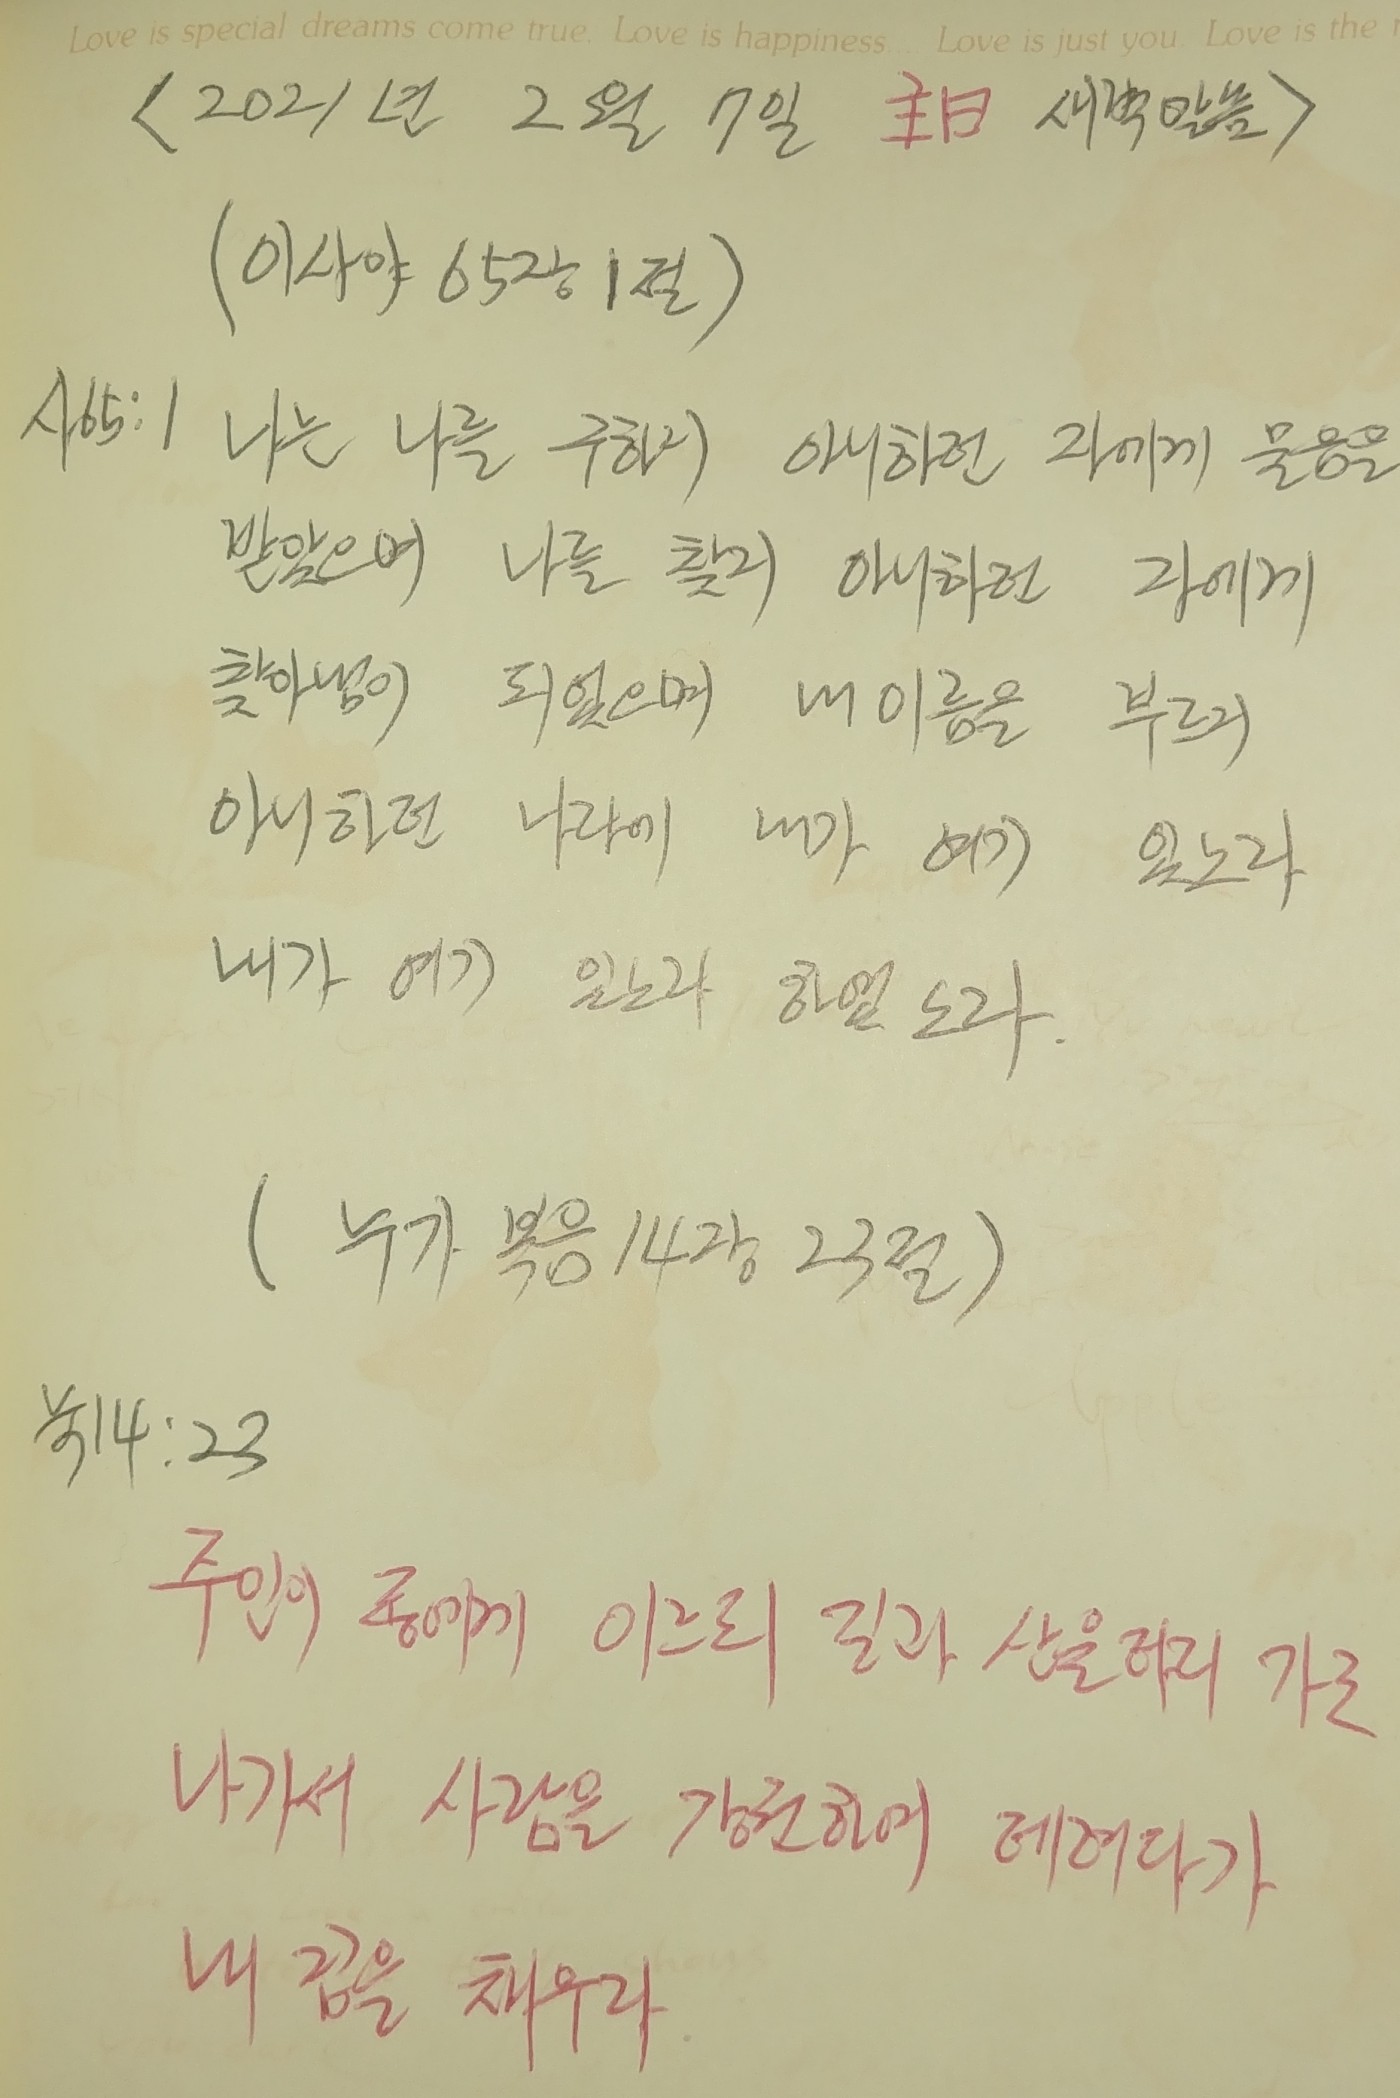 Love is special dreams come true. Love is happiness.... Love is just you. Love is the
<2021년 2월 7일 主日 새벽말씀>
(이사야 65장 1절)
사65:1 나는 나를 구하지 아니하던 자에게 물음을
받았으며 나를 찾지 아니하던 자에게
찾아냄이 되었으며 내 이름을 부르지
아니하던 나라에 내가 여기 있노라
내가 여기 있노라 하였노라.
(누가복음 14장 23절)
눅14:23
주인이 종에게 이르되 길과 산울타리 가로
나가서 사람을 강권하여 데려다가
내 집을 채우라.